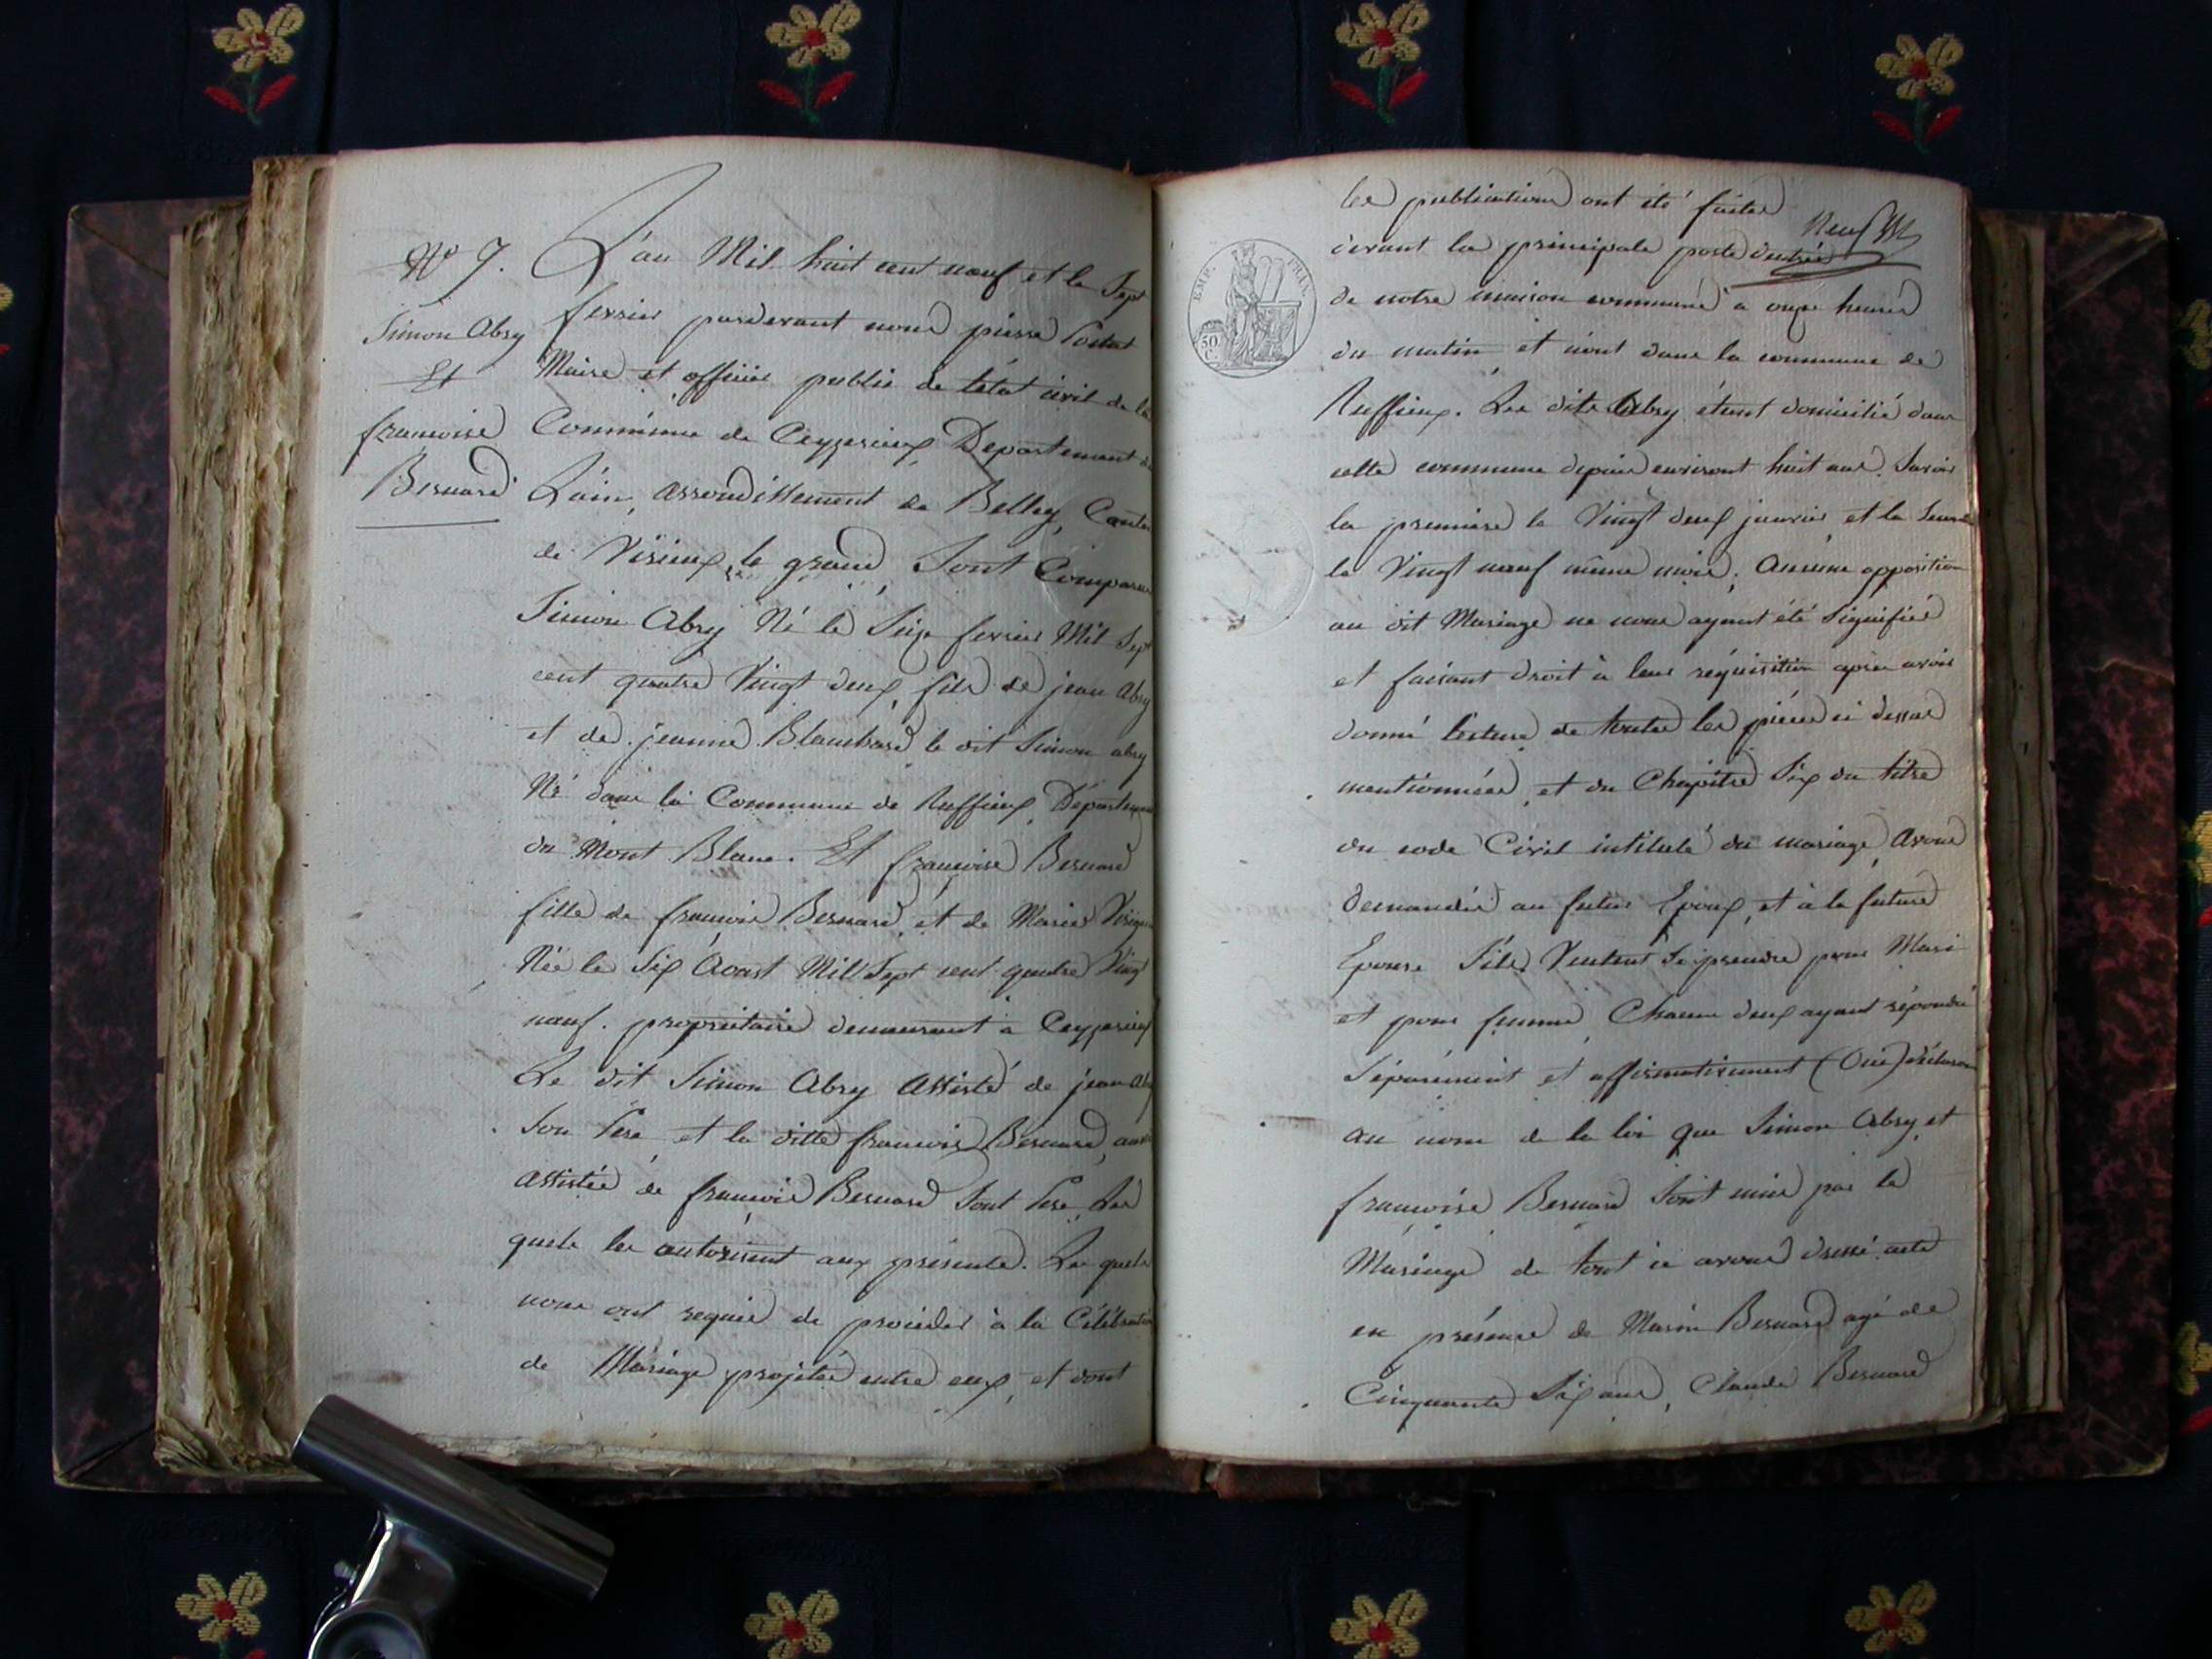 N° 7.
Simon Abry
Et
françoise
Bernard
L'an Mil huit cent neuf et le Sept
fevrier pardevant nous pierre
Maire et officier public de létat civil de la
Commune de Ceyzerieux Departement de
Lain, arrondissement de Belley, Canton
de Virieux le grand, Sont Comparus
Simon Abry Né le Seize fevrier Mil Sept
cent quatre Vingt deux, fils de jean Abry
et de jeanne Blanchard le dit Simon abry
Né dans la Commune de Ruffieux Département
du Mont Blanc. Et françoise Bernard
fille de françois Bernard, et de Marie
Née le Six Aoust Mil Sept cent quatre Vingt
neuf. propriétaire demeurant à Ceyzerieux
Le dit Simon Abry Assisté de jean Abry
Son Pere et la ditte françoise Bernard, aussi
Assistée de françois Bernard Sont Pere, Les
quels les autorisent aux présente. Les quels
nous ont requis de procéder à la Célébration
de Mariage projetée entre eux, et dont
les publications ont été faites
Neuf
devant la principale porte dentrée
EMP. FRAN.
50 C.
de notre maison commune à onze heures
du matin et icont dans la commune de
Ruffieux. Les dits Abry étant domicilié dans
cette commune depuis environt huit ans. Savoir
la premiere le Vingt deux janvier et la Seconde
le Vingt neuf même mois. Aucune opposition
au dit Mariage ne nous ayant été Signifiée
et faisant droit à leur réquisition apres avoir
donné lecture de toutes les pièces ci dessus
mentionnées, et du Chapitre Six du titre
du code Civil intitulé du mariage, Avons
demandés au futur Epoux, et à la future
Epouse S'ils Veulent Se prendre pour Mari
et pour femme, Chacun deux ayant répondu
Séparément et affirmativement (Oui) déclarons
au nom de la loi que Simon Abry et
françoise Bernard Sont unis par le
Mariage de tout ce avons dressé acte
en présence de Marin Bernard agé de
Cinquante Six ans, Claude Bernard